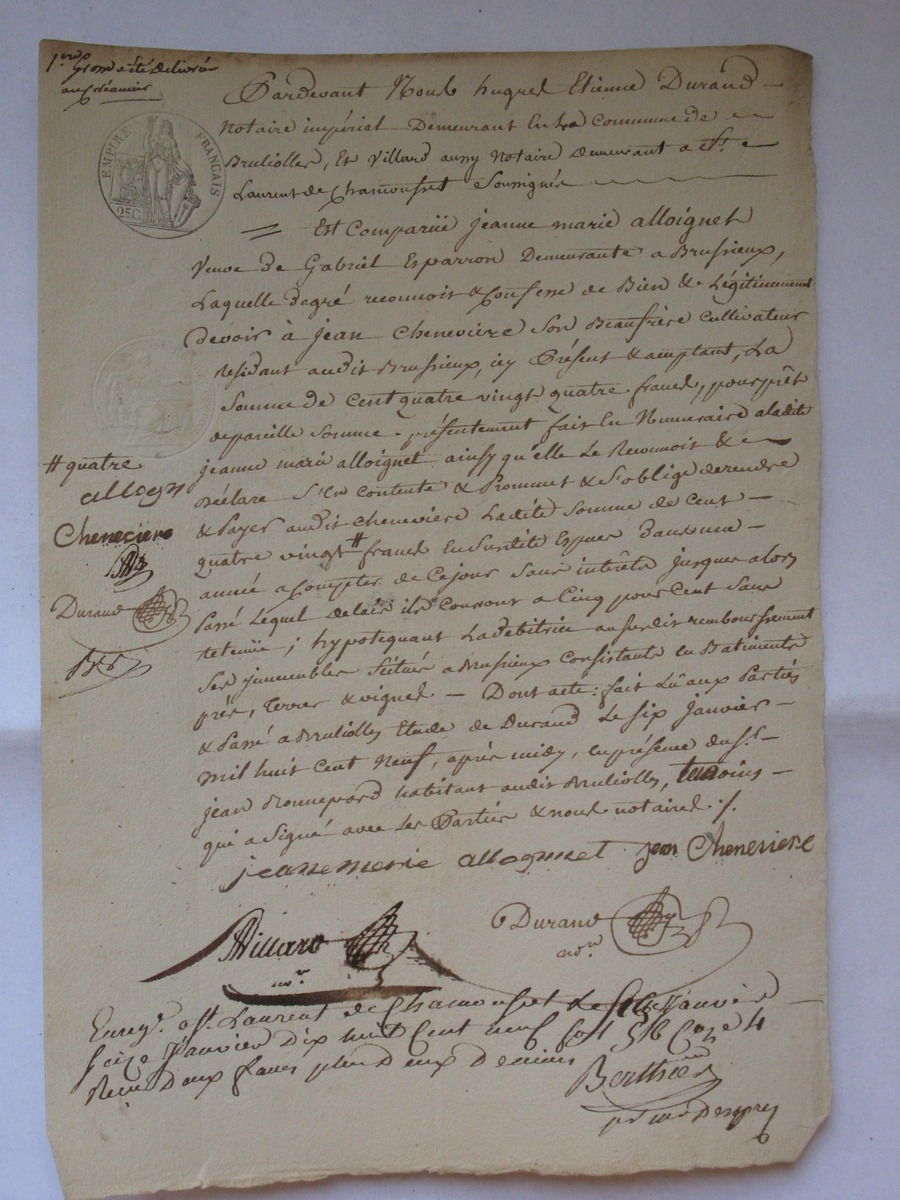 1ere grosse a été délivrée
au créancier
EMPIRE FRANÇAIS
25C
Pardevant Nous hugues Etienne Durand
Notaire impérial Demeurant En La Commune de
Brulioller, Et Villard aussy Notaire demeurant a St.
Laurent de Chamousset Soussignés
Est Comparüe jeanne marie alloignet
Veuve de Gabriel Esparron Demeurante a Brussieux,
Laquelle degré reconnoit & Confesse de Bien & Légitimement
devoir à jean Chenevière Son Beaufrère Cultivateur
résidant audit Brussieux, icy Présent & acceptant, La
Somme de Cent quatre vingt quatre francs, pour prêt
de pareille Somme présentement fait En Numeraire a ladite
jeanne marie alloignet ainsy qu'elle Le Reconnoit &
Déclare S'en contente & Promet & s'oblige de rendre
& Payer audit Chenevière Ladite Somme de Cent
quatre vingt # francs En Susdite Espèces Dans une
année a Compter de Ce jour Sans intérêts jusques alors
Passé Lequel délais ils Courront a Cinq pour Cent Sans
retenüe ; hypotequant La débitrice au Susdit remboursement
Ses jmmeubles Scitués a Brussieux Consistants En Batiments
prés, terres & vignes — Dont acte : fait Lû aux Parties
& Passé a Brulliolles Etude de Durand Le Six janvier
mil huit Cent Neuf, après midy, En présence du Sr.
jean habitant audit Brulliolles, temoins
qui a Signé avec Les Parties & nous notaires ./.
# quatre
allogn
Cheneciere
Durand
jeanne marie allognet jean Chenevière
Villard
nore
Durand
nore
Enregé. a St. Laurent de Chamousset Le Seize Janvier
Seize Janvier Dix huit Cent neuf fol 56 Case 4
Reçu Deux francs plus Deux Decimes
Berthier